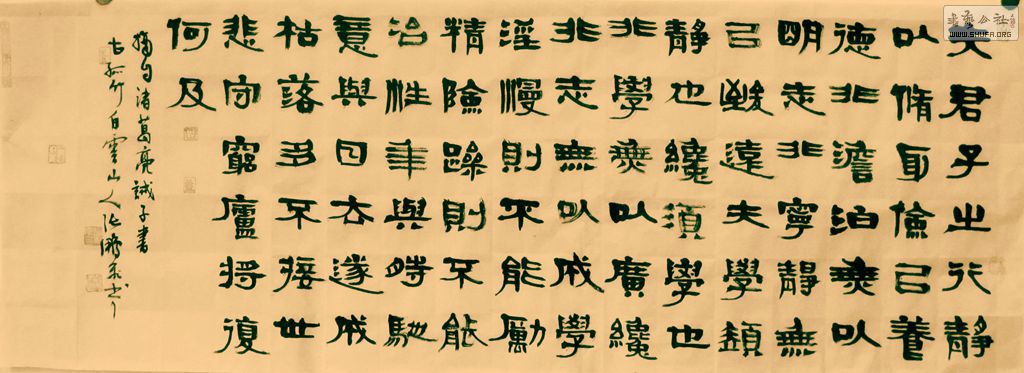 夫君子之行靜
以脩身儉㠯養
德非澹泊無以
明志非寧靜無
㠯致遠夫學須
靜也纔須學也
非學無以廣纔
非志無以成學
淫漫則不能勵
精險躁則不能
治性年與時馳
意與日去遂成
枯落多不接世
悲守窮廬將復
何及
摘句諸葛亮誡子書
白雲山人
書藝公社
WWW.SHUFA.ORG